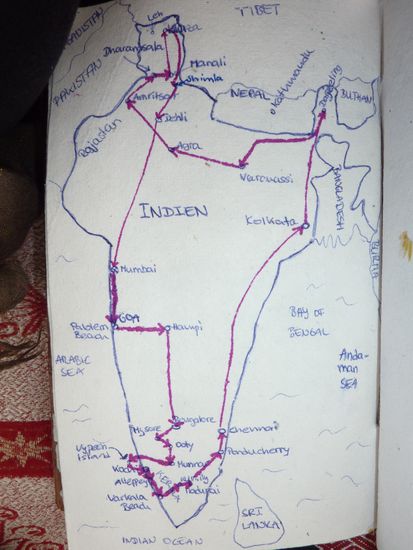 TIBET
Leh
PAKISTAN
Dharamsala
Manali
Shimla
Amritsar
NEPAL
Kathmandu
Darjeeling
BUTHAN
Dehli
Rajastan
Agra
Varanassi
INDIEN
BANGLADESH
Kolkata
Mumbai
GOA
Palolem
Beach
Hampi
BAY OF
BENGAL
ARABIC
SEA
Anda-
man
SEA
Bangalore
Mysore
Chennai
Ooty
Vypeen
Island
Munnar
Ponducherry
Kochi
KERALA
Allepey
Madurai
Varkala
Beach
SRI
LANKA
INDIAN OCEAN